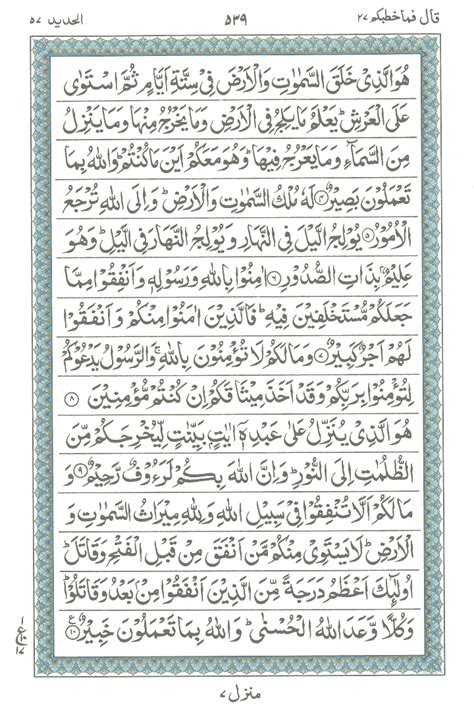 قال فماخطبكم ٢٧ ٥٣٩ الحديد ٥٧
هُوَ الَّذِىْ خَلَقَ السَّمٰوٰتِ وَالْاَرْضَ فِىْ سِتَّةِ اَيَّامٍ ثُمَّ اسْتَوٰى
عَلَى الْعَرْشِ ؕ يَعْلَمُ مَا يَلِجُ فِى الْاَرْضِ وَمَا يَخْرُجُ مِنْهَا وَمَا يَنْزِلُ
مِنَ السَّمَآءِ وَمَا يَعْرُجُ فِيْهَا ؕ وَهُوَ مَعَكُمْ اَيْنَ مَا كُنْتُمْ ؕ وَاللّٰهُ بِمَا
تَعْمَلُوْنَ بَصِيْرٌ ۞۴ لَهٗ مُلْكُ السَّمٰوٰتِ وَالْاَرْضِ ؕ وَاِلَى اللّٰهِ تُرْجَعُ
الْاُمُوْرُ ۞۵ يُوْلِجُ الَّيْلَ فِى النَّهَارِ وَيُوْلِجُ النَّهَارَ فِى الَّيْلِ ؕ وَهُوَ
عَلِيْمٌۢ بِذَاتِ الصُّدُوْرِ ۞۶ اٰمِنُوْا بِاللّٰهِ وَرَسُوْلِهٖ وَاَنْفِقُوْا مِمَّا
جَعَلَكُمْ مُّسْتَخْلَفِيْنَ فِيْهِ ؕ فَالَّذِيْنَ اٰمَنُوْا مِنْكُمْ وَاَنْفَقُوْا
لَهُمْ اَجْرٌ كَبِيْرٌ ۞۷ وَمَا لَكُمْ لَا تُؤْمِنُوْنَ بِاللّٰهِ ۚ وَالرَّسُوْلُ يَدْعُوْكُمْ
لِتُؤْمِنُوْا بِرَبِّكُمْ وَقَدْ اَخَذَ مِيْثَاقَكُمْ اِنْ كُنْتُمْ مُّؤْمِنِيْنَ ۞۸
هُوَ الَّذِىْ يُنَزِّلُ عَلٰى عَبْدِهٖۤ اٰيٰتٍۭ بَيِّنٰتٍ لِّيُخْرِجَكُمْ مِّنَ
الظُّلُمٰتِ اِلَى النُّوْرِ ؕ وَاِنَّ اللّٰهَ بِكُمْ لَرَءُوْفٌ رَّحِيْمٌ ۞۹ وَ
مَا لَكُمْ اَلَّا تُنْفِقُوْا فِىْ سَبِيْلِ اللّٰهِ وَلِلّٰهِ مِيْرَاثُ السَّمٰوٰتِ وَ
الْاَرْضِ ؕ لَا يَسْتَوِىْ مِنْكُمْ مَّنْ اَنْفَقَ مِنْ قَبْلِ الْفَتْحِ وَقَاتَلَ ؕ
اُولٰٓئِكَ اَعْظَمُ دَرَجَةً مِّنَ الَّذِيْنَ اَنْفَقُوْا مِنْۢ بَعْدُ وَقَاتَلُوْا ؕ
وَكُلًّا وَّعَدَ اللّٰهُ الْحُسْنٰى ؕ وَاللّٰهُ بِمَا تَعْمَلُوْنَ خَبِيْرٌ ۞۱۰
١ ع ١٧
منزل ٧